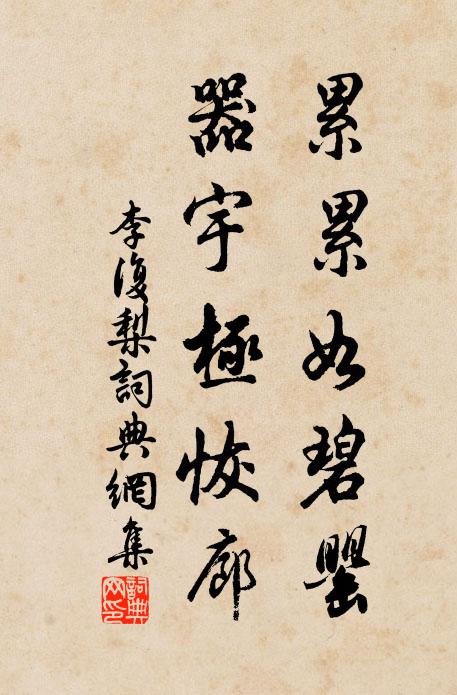 累累如碧罌
器宇極恢廓
李復梨詞典網集
詞典網印